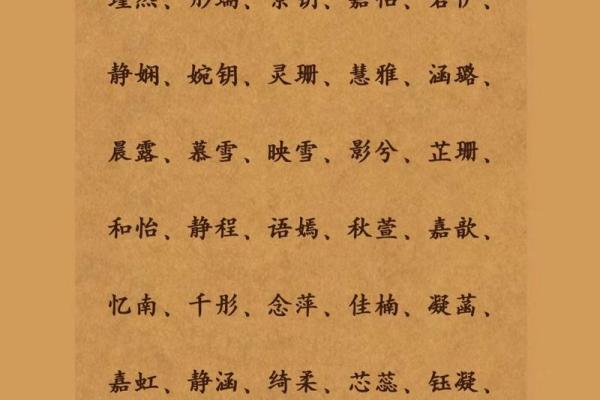 静娴、婉钥、灵珊、慧雅、涵璐、
晨露、慕雪、映雪、影兮、芷珊、
和怡、静程、语嫣、秋萱、嘉歆、
忆南、千彤、念萍、佳楠、凝菡、
嘉虹、静涵、绮柔、芯蕊、钰凝、